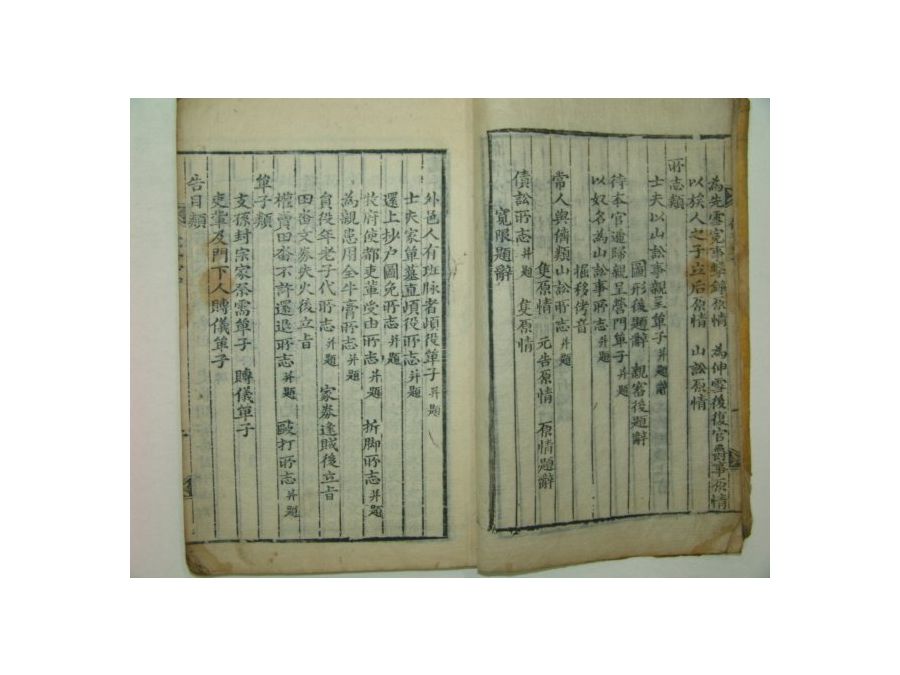 為先雪寃事擊錚原情 為伸雪後復官爵事原情
以族人之子立后原情 山訟原情
所志類
士夫以山訟事親呈單子并題辭
圖形後題辭 親審後題辭
待本官遞歸親呈營門單子并題
以奴名為山訟事所志并題
掘移侤音
常人與儕類山訟所志
隻原情 元告原情 原情題辭
債訟所志并題 隻原情
寬限題辭
外邑人有班脉者頉役單子并題
士夫家單墓直頉役所志并題
還上抄户圖免所志并題
牧府使都吏輩受由所志并題 折脚所志并題
為親患用全牛膏所志并題
負役年老子代所志并題 家券逢賊後立旨
田畓文券失火後立旨
權賣田畓不許還退所志并題 毆打所志并題
單子類
支孫封宗家祭需單子 賻儀單子
吏輩及門下人賻儀單子
告目類